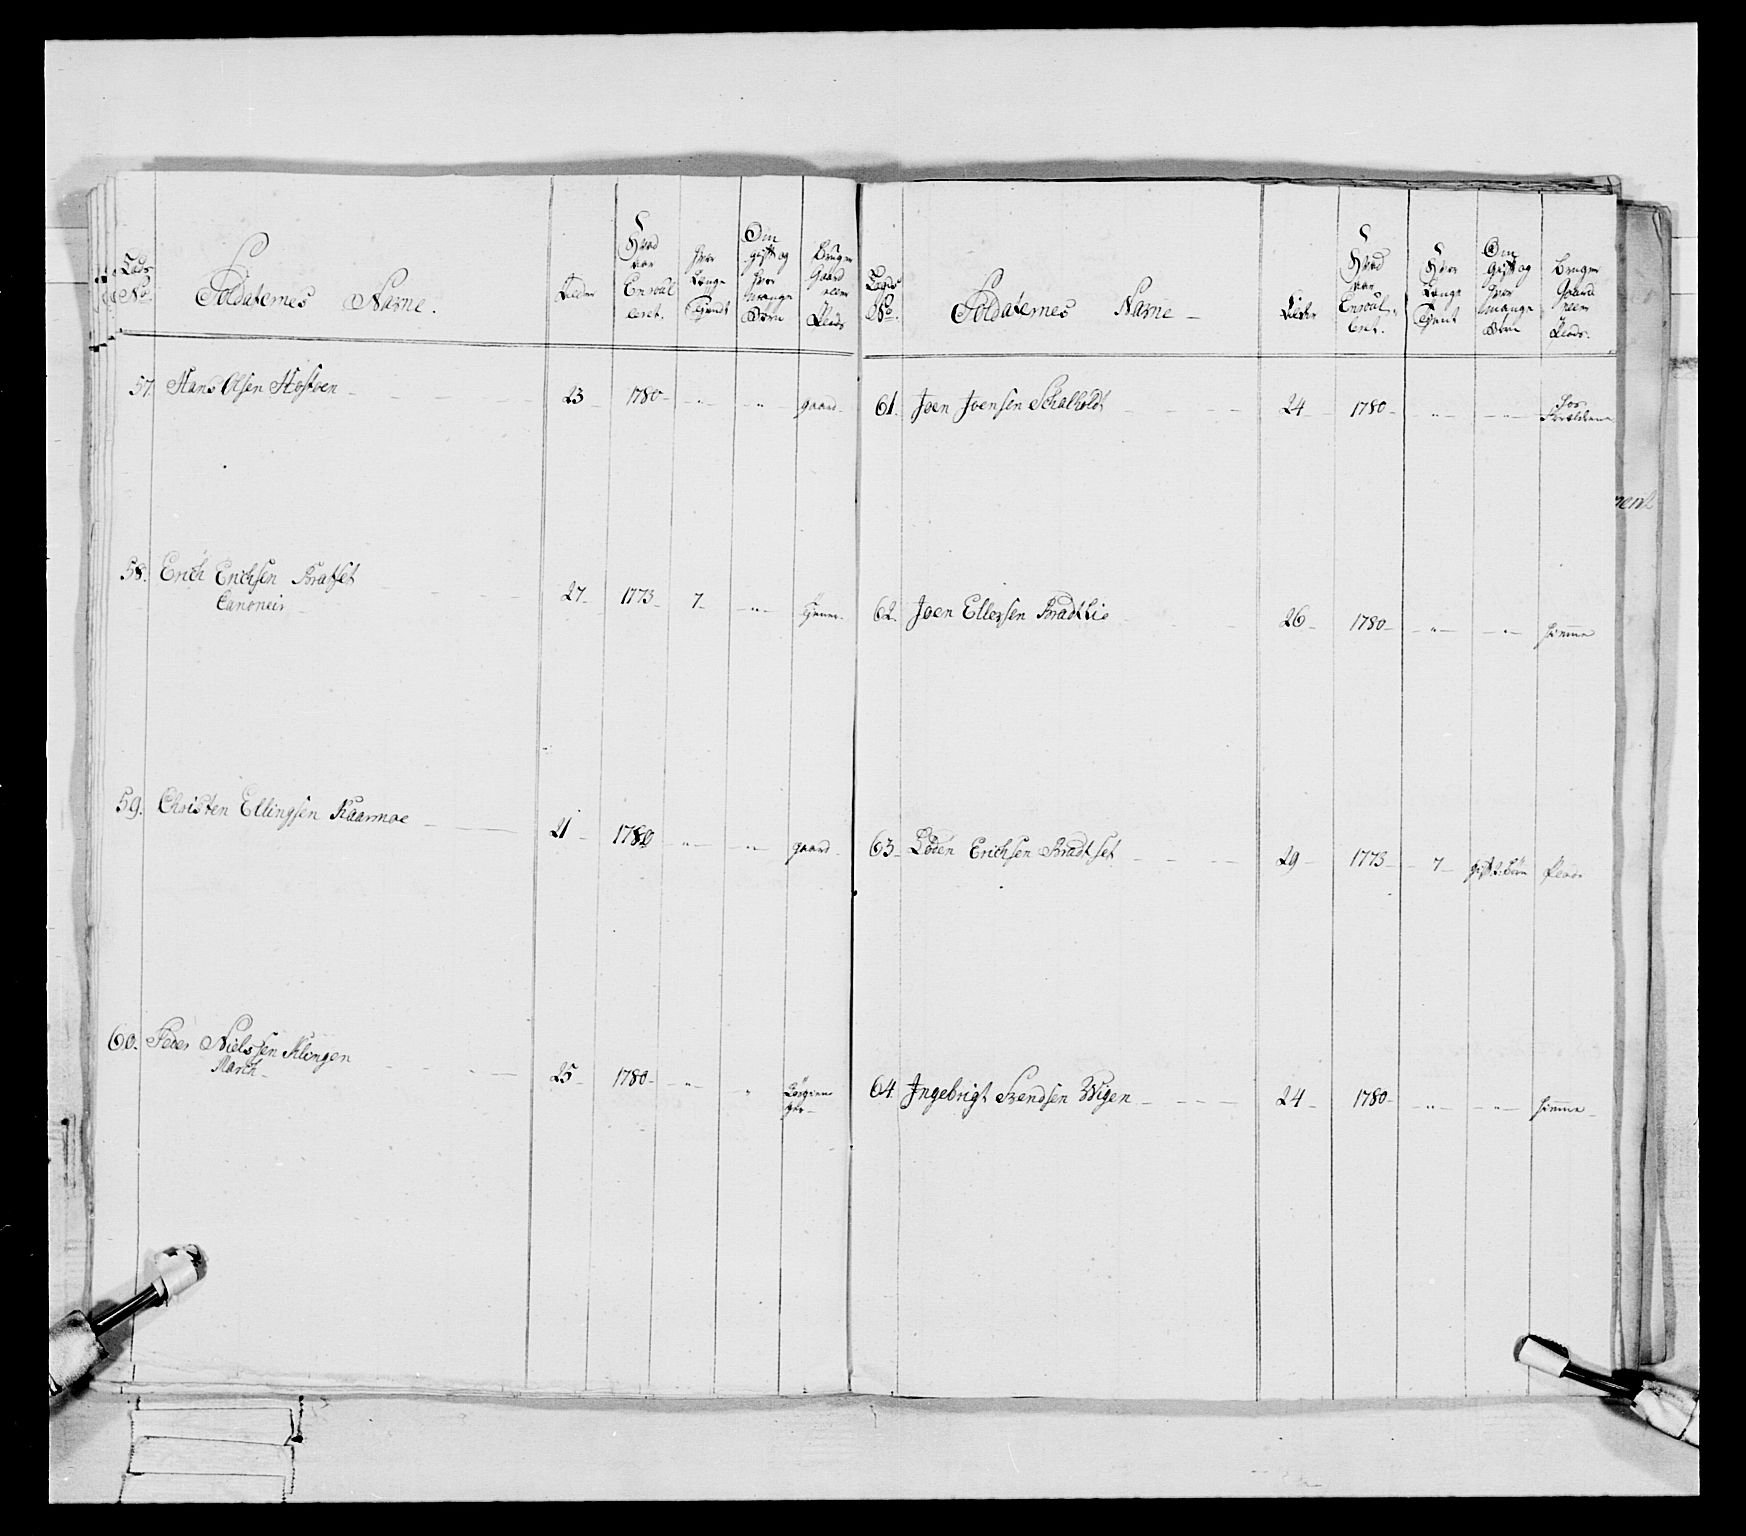 Lods No.
Soldaternes Nafne.
Alder
Hvad aar Enroulleret.
Hvor Længe Tjendt
Om gift og hvor mange Børn
Bruger Gaard eller Plads
57. Hans Olsen Hostoen 23 1780 " " gaard
58. Erich Erichsen Bratset 27 1773 7 " tjener
Canoneir
59. Christen Ellingsen Kaarmoe 21 1780 " " gaard
60. Peder Nielssen Klingen 25 1780 " "
March
Lods No.
Soldaternes Nafne
Alder
Hvad aar Enroulleret.
Hvor Længe Tjent
Om Gift og hvor mange Børn
Bruger Gaard eller Plads.
61. Joen Joensen Schalholdt 24 1780 " " hos Forældrene
62. Joen Ellefsen Bradtlie 26 1780 " " hiemme
63. Loden Erichsen Bradtset 29 1773 7 gift 2 Børn Plads
64 Ingebrigt Svendsen Wigen 24 1780 " " hiemme